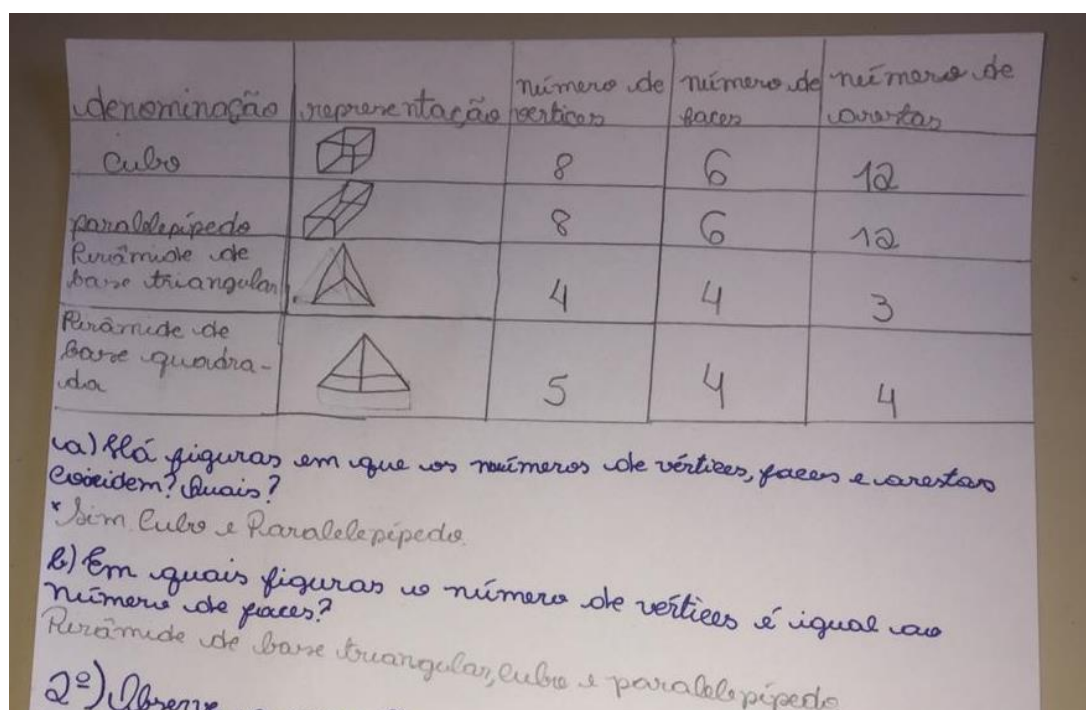 denominação representação número de vértices número de faces número de arestas
Cubo 8 6 12
paralelepípedo 8 6 12
Pirâmide de
base triangular 4 4 3
Pirâmide de
base quadra-
da 5 4 4
a) Há figuras em que os números de vértices, faces e arestas
coincidem? Quais?
* Sim. Cubo e Paralelepípedo.
b) Em quais figuras o número de vértices é igual ao
número de faces?
Pirâmide de base triangular, cubo e paralelepípedo
2º) Observe